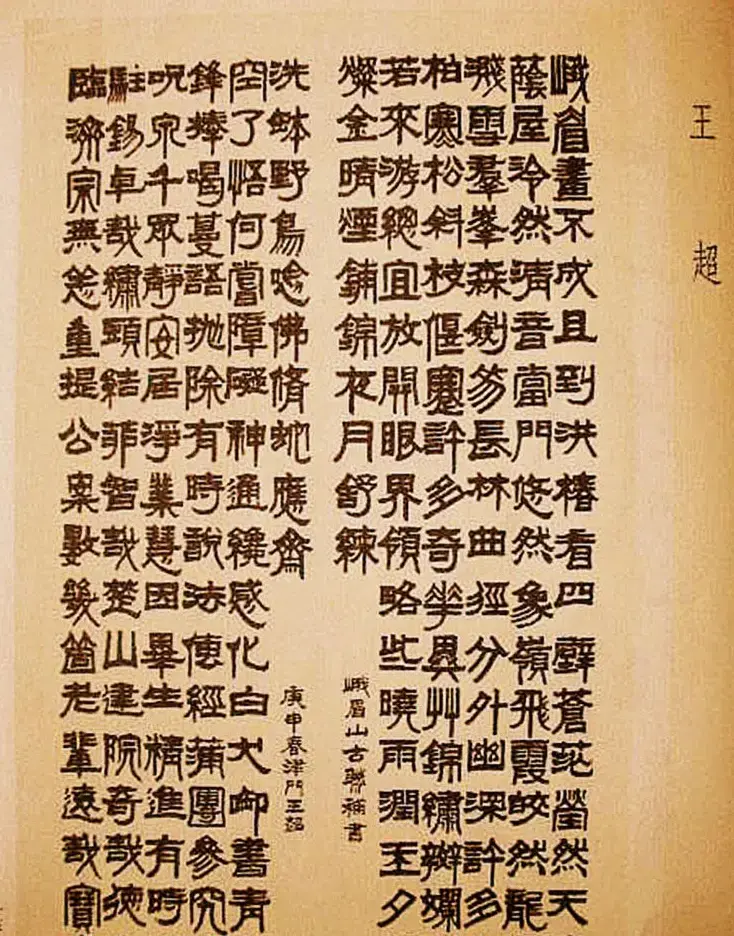 王超
峨眉畫不成且到洪椿看四壁蒼茫瑩然天
蔭屋泠然清音當門悠然象嶺飛霞皎然龍
濺雪羣峯森劍笏長林曲徑分外幽深許多
柏寒松斜枝偃蹇許多奇花異艸錦繡辬斕
若來游總宜放開眼界領略些曉雨潤玉夕
燦金晴煙鋪錦夜月舒練
峨眉山古聯補書
臨濟宗無恙重提公案數幾箇老輩遠哉寶
駐錫卓哉繡頭結茆智哉楚山建院奇哉德
呪泉千眾靜安居淨業慧因畢生精進有時
鋒捧喝蔓語拋除有時說法傳經蒲團參究
空了悟何嘗障礙神通纔感化白犬銜書青
洗鉢野鳥唸佛脩蛇應齋
庚申春津門王超